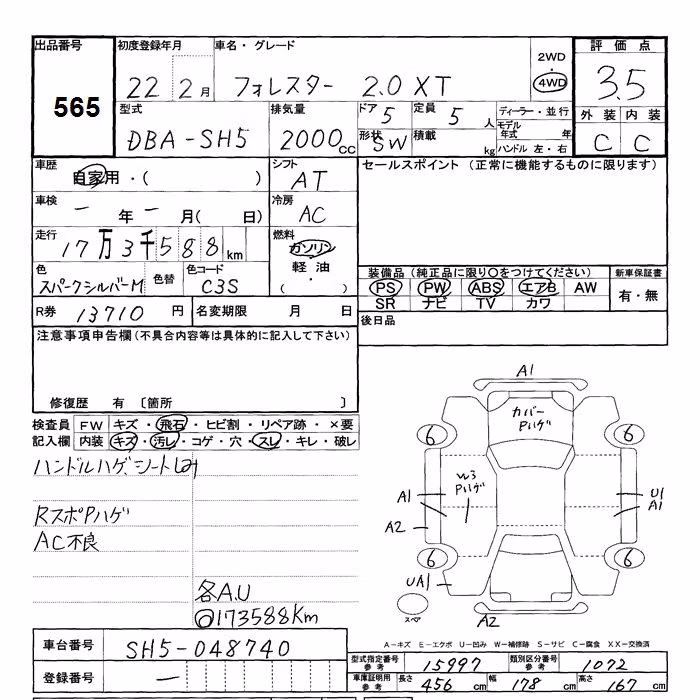 出品番号
565
初度登録年月
22 2月
車名・グレード
フォレスター 2.0 XT
2WD
4WD
評価点
3.5
型式
DBA-SH5
排気量
2000cc
ドア
5
形状
SW
定員
5人
積載
kg
ディーラー・並行
モデル年式 年
ハンドル 左・右
外装 内装
C C
車歴
自家用・( )
シフト
AT
セールスポイント (正常に機能するものに限ります)
車検
- 年 - 月( 日)
冷房
AC
走行
17万3千588km
燃料
ガソリン
軽油
( ・ )
色
スパークシルバーM
色替
色コード
C3S
装備品(純正品に限り○をつけてください)
PS PW ABS エアB AW
SR ナビ TV カワ
新車保証書
有・無
R券
13710 円
名変期限 月 日
後日品
注意事項申告欄(不具合内容等は具体的に記入して下さい)
修復歴 有 〔箇所 〕
検査員記入欄
FW キズ・飛石・ヒビ割・リペア跡・×要
内装 キズ・汚レ・コゲ・穴・スレ・キレ・破レ
ハンドルハゲ、シート凹
RスポPハゲ
AC不良
各A.U
◎173588Km
A1
カバー
Pハゲ
6
6
W3
Pハゲ
A1
A2
U1
A1
6
6
UA1
スペア
A2
A-キズ E-エクボ U-凹み W-補修跡 S-サビ C-腐食 XX-交換済
車台番号
SH5-048740
登録番号
-
型式指定番号
参考
15997
類別区分番号
参考
1072
車庫証明用
参考
長さ 456 cm
幅 178 cm
高さ 167 cm